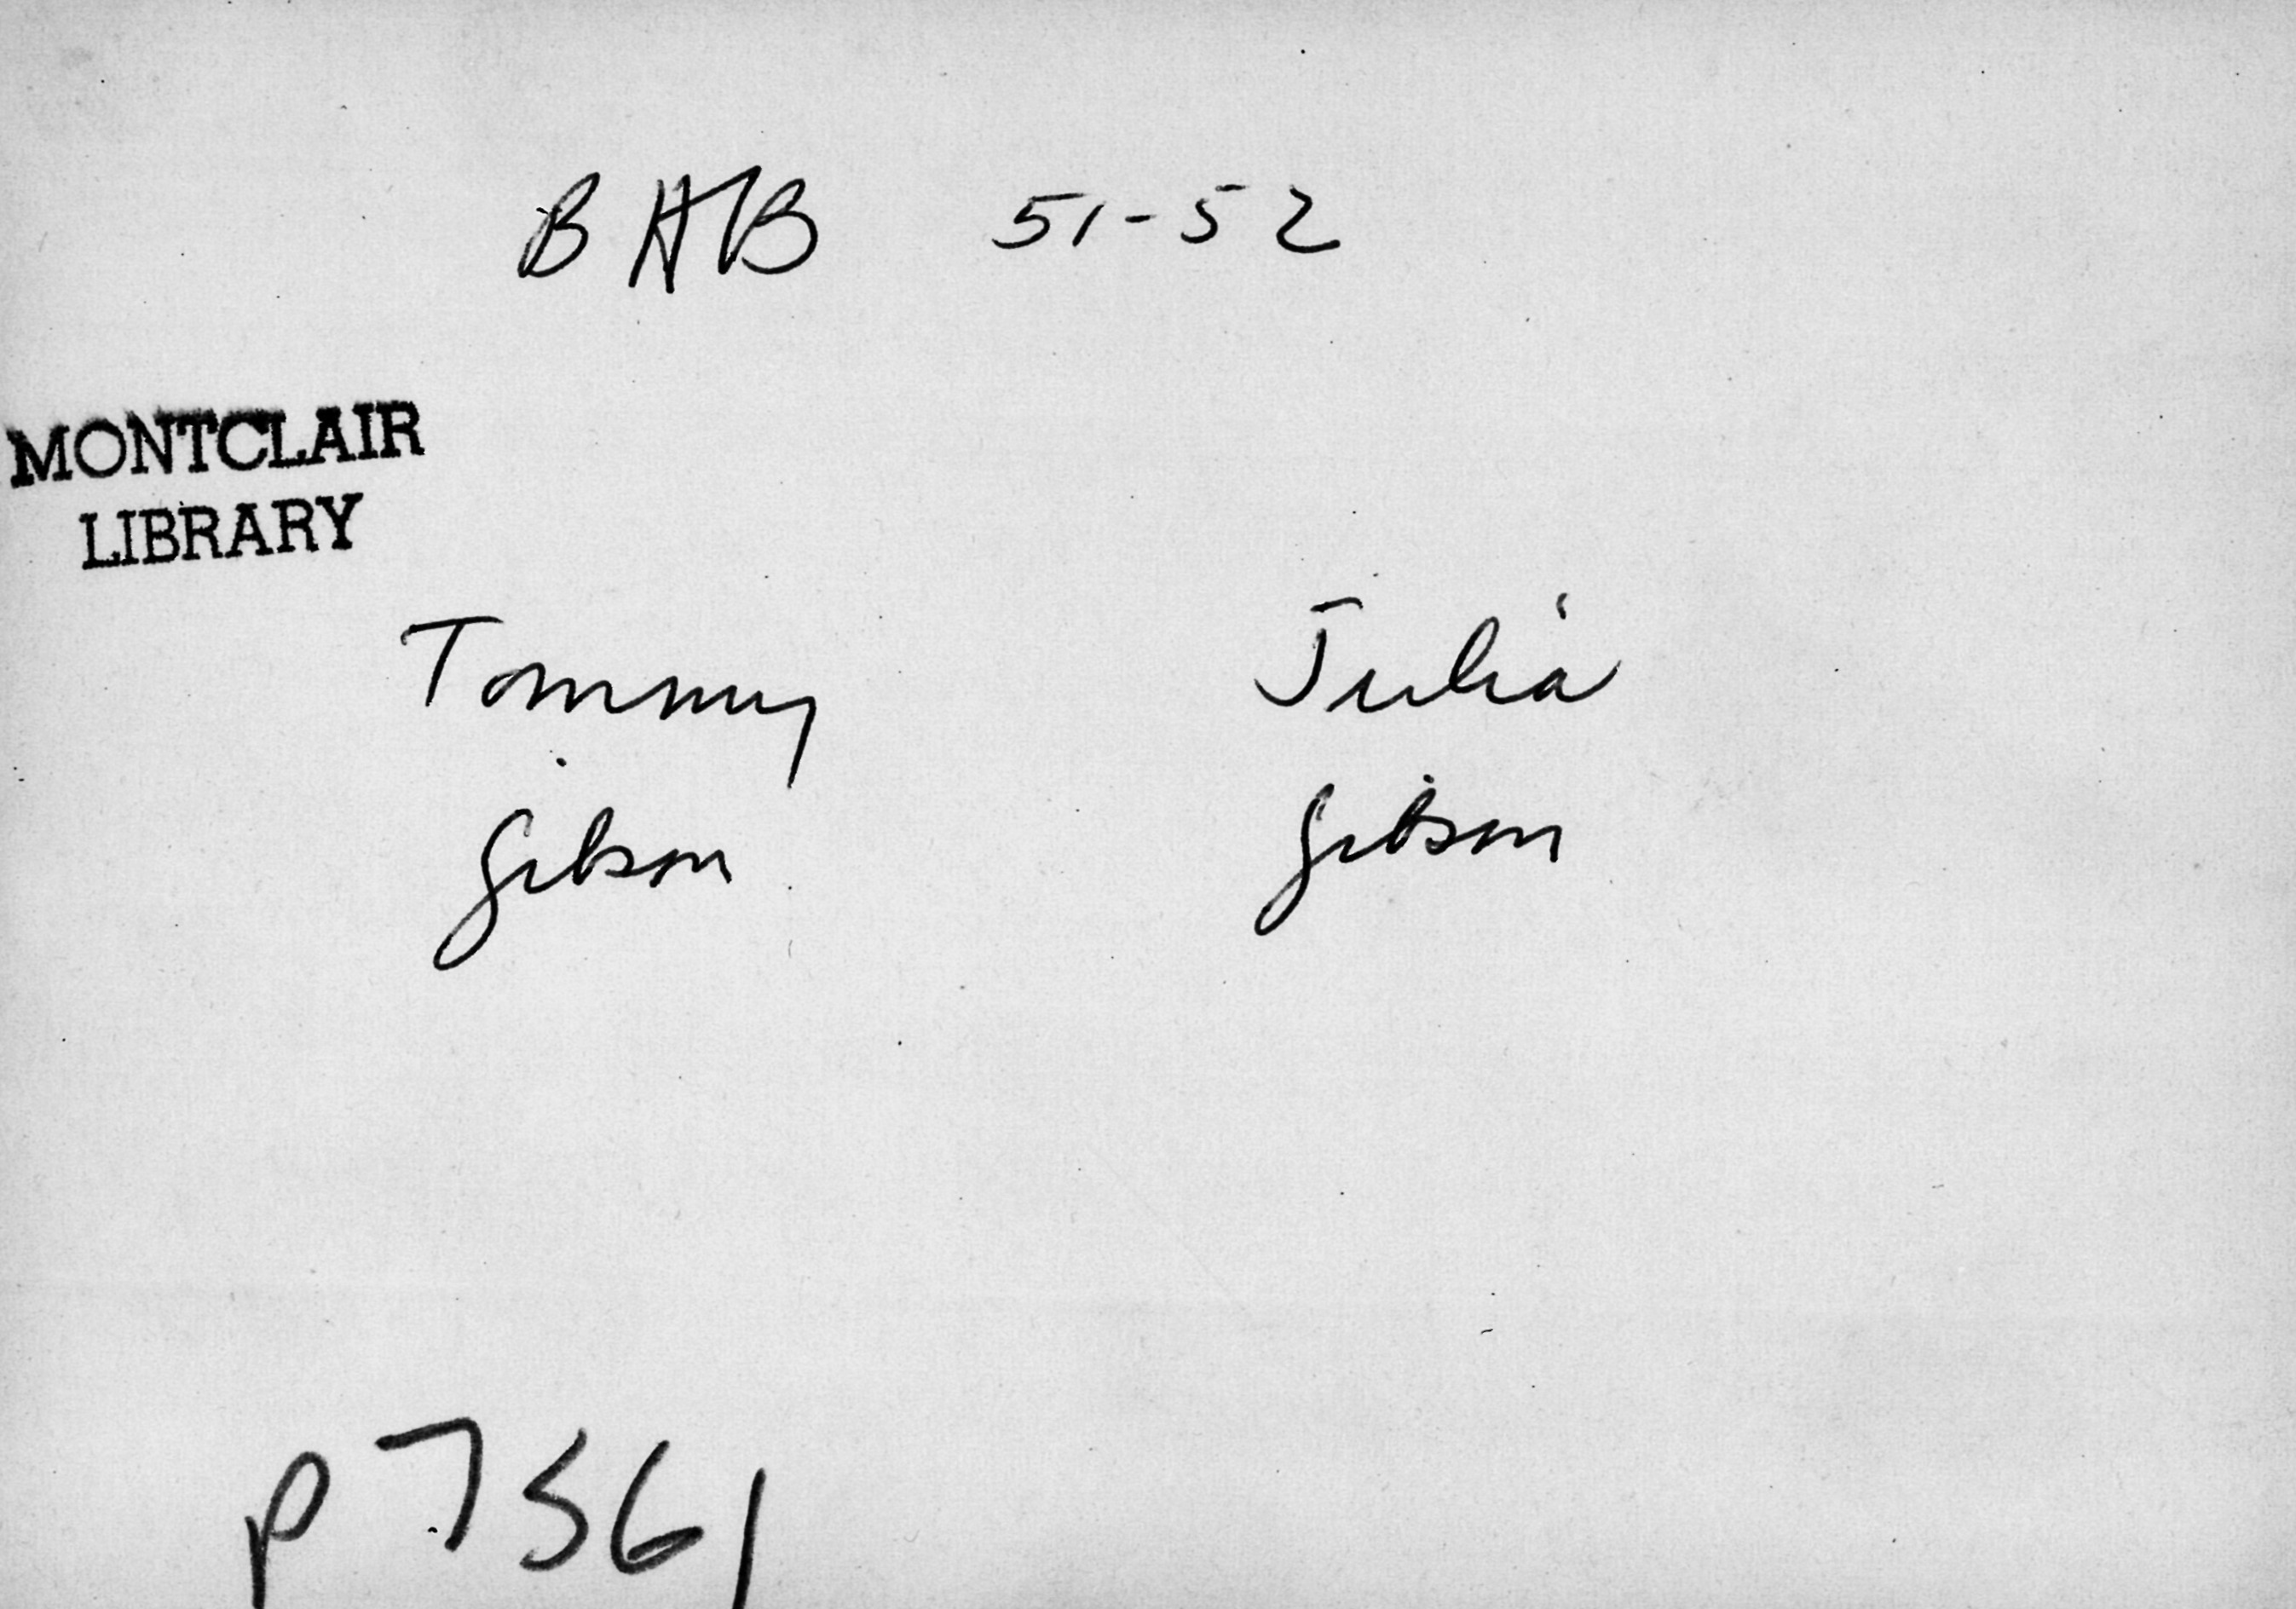 BAB 51-52
MONTCLAIR
LIBRARY
Tommy Julia
Gibson Gibson
p7561